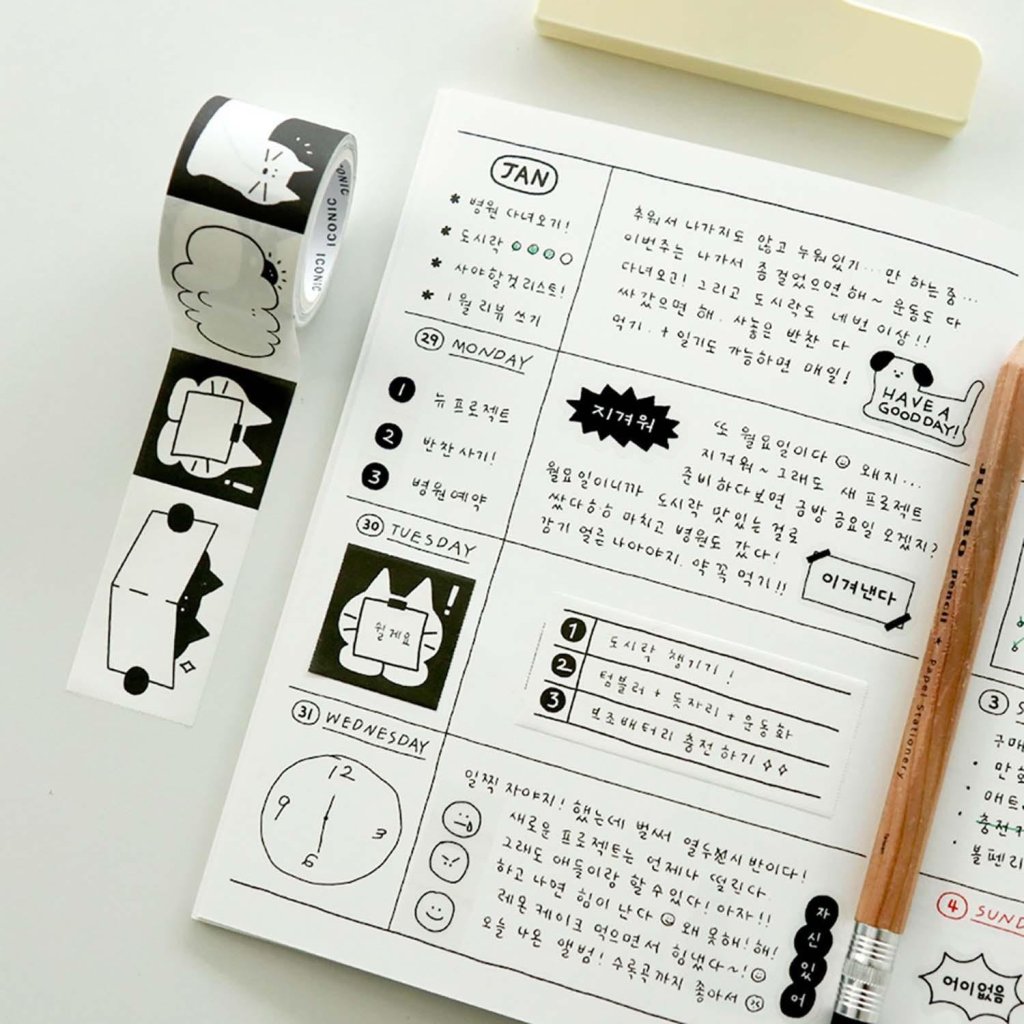 ICONIC ICONIC ICONIC
JAN
* 병원 다녀오기!
* 도시락
* 사야할것리스트!
* 1월 리뷰 쓰기
추워서 나가지도 않고 누워있기... 만 하는중...
이번주는 나가서 좀 걸었으면 해~ 운동도 다
다녀오고! 그리고 도시락도 네번 이상!!
싸 갔으면 해. 사놓은 반찬 다
먹기. + 일기도 가능하면 매일!
HAVE A
GOOD DAY!
29 MONDAY
1 뉴 프로젝트
2 반찬 사기!
3 병원예약
지겨워
또 월요일이다 왜지...
지겨워~ 그래도 새 프로젝트
준비하다보면 금방 금요일 오겠지?
월요일이니까 도시락 맛있는 걸로
쌌다 마치고 병원도 갔다!
감기 얼른 나아야지. 약 꼭 먹기!!
이겨낸다
30 TUESDAY
쉴게요
1 도시락 챙기기!
2 텀블러 + 돗자리 + 운동화
3 보조배터리 충전하기
31 WEDNESDAY
12
9
3
6
일찍 자야지! 했는데 벌써 열두시 반이다!
새로운 프로젝트는 언제나 떨린다
그래도 애들이랑 할 수 있다! 아자!!
하고 나면 힘이 난다 왜 못해! 해!
레몬 케이크 먹으면서 힘냈다~!
오늘 나온 앨범! 수록곡까지 좋아서
자
신
있
어
JUMBO pencil + Papei Stationery
3
구매
만
매트
충전
볼펜리
4 SUND
어이없음